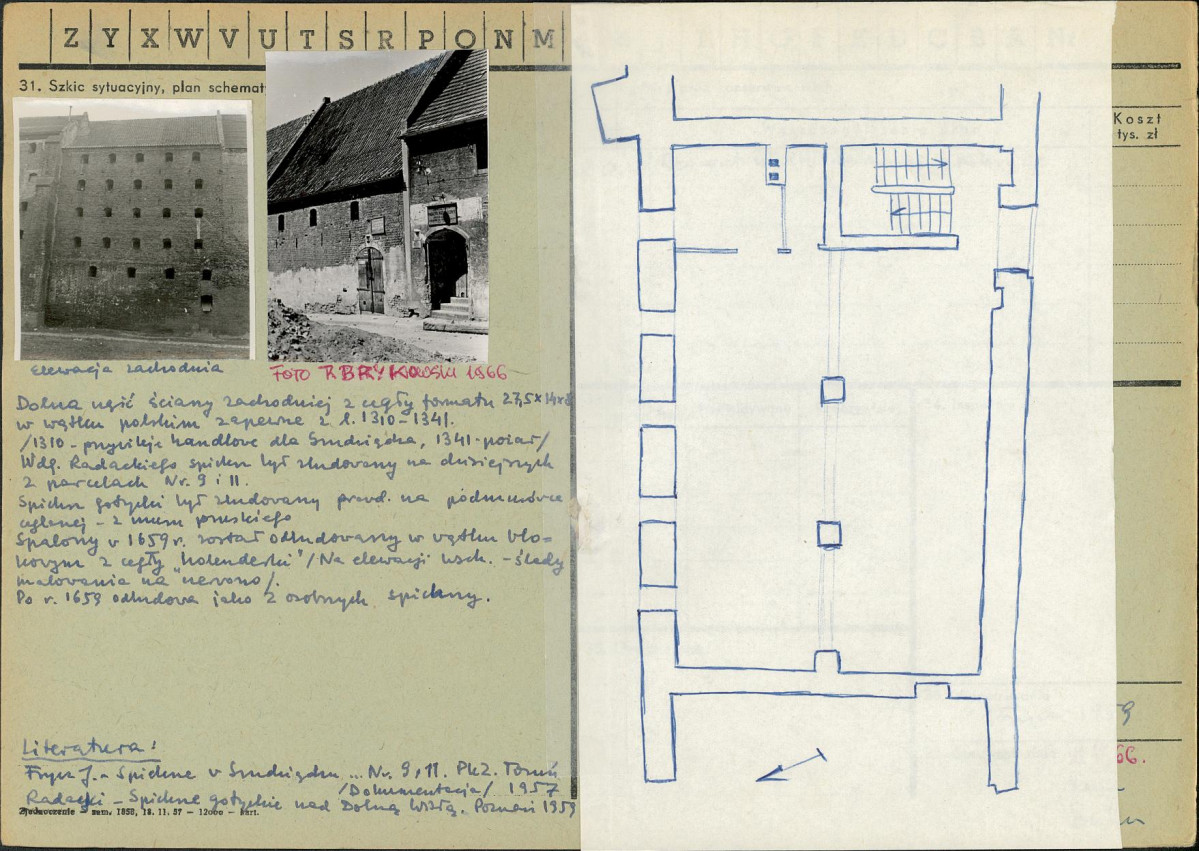 Z Y X W V U T S R P O N M
31. Szkic sytuacyjny, plan schemat
Koszt
tys. zł
elewacja zachodnia
FOTO R. BRYKOWSKI 1966
Dolna część ściany zachodniej z cegły formatu 27,5×14×8
w wątku polskim zapewne z l. 1310-1341.
/1310 - przywileje handlowe dla Grudziądza, 1341 - pożar/
Wdg. Radackiego spichrz był zbudowany na dzisiejszych
2 parcelach Nr. 9 i 11.
Spichrz gotycki był zbudowany prawd. na podmurówce
ceglanej - z muru pruskiego
Spalony w 1659 r. został odbudowany w wątku blo-
kowym z cegły "holenderki" /Na elewacji wsch. - ślady
malowania na czerwono/.
Po r. 1659 odbudowa jako 2 osobnych spichrzy.
Literatura:
Frycz J. - Spichrze w Grudziądzu ... Nr. 9, 11. PKZ. Toruń
/Dokumentacja/ 1957
Radacki - Spichrze gotyckie nad Dolną Wisłą. Poznań 1959
Zjednoczenie zam. 1858, 18. 11. 57 — 12000 — kart.
9
66.